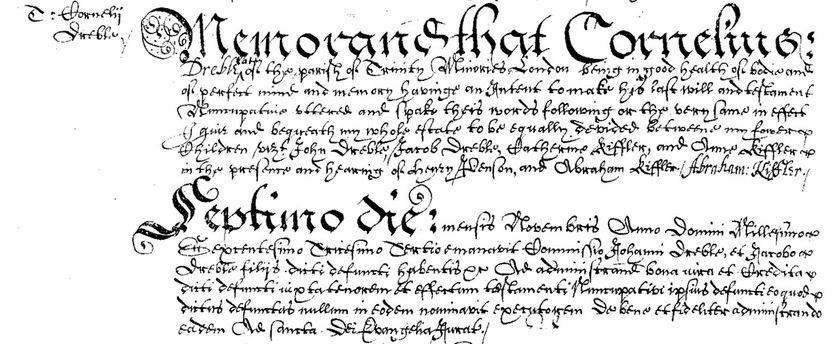 T: Cornelij
Dreble /
Memorand that Cornelius:
Dreble late of the parish of Trinity Minories London being in good health of bodie and
of perfect mind and memory havinge an Intent to make his last will and testament
Nuncupative uttered and spake theis words following or the very same in effect
I give and bequeath my whole estate to be equally devided betweene my fower
Children vizt John Dreble, Jacob Dreble, Catherine Kiffler, and Anne Kiffler
in the presence and hearing of Henry Penson, and Abraham Kiffler / Abraham: Kiffler /
Septimo die: mensis Novembris Anno Domini Millesimo
Sexcentesimo Tricesimo Tertio emanavit Commissio Johanni Dreble, et Jacobo
Dreble filijs dicti defuncti habentis &c Ad administrand bona iura et Credita
dicti defuncti iuxta tenorem et effectum testamenti Nuncupativi ipsius defuncti eo quod
dictus defunctus nullum in eodem nominavit executorem De bene et fideliter administrando
eadem Ad sancta Dei Evangelia Jurat /